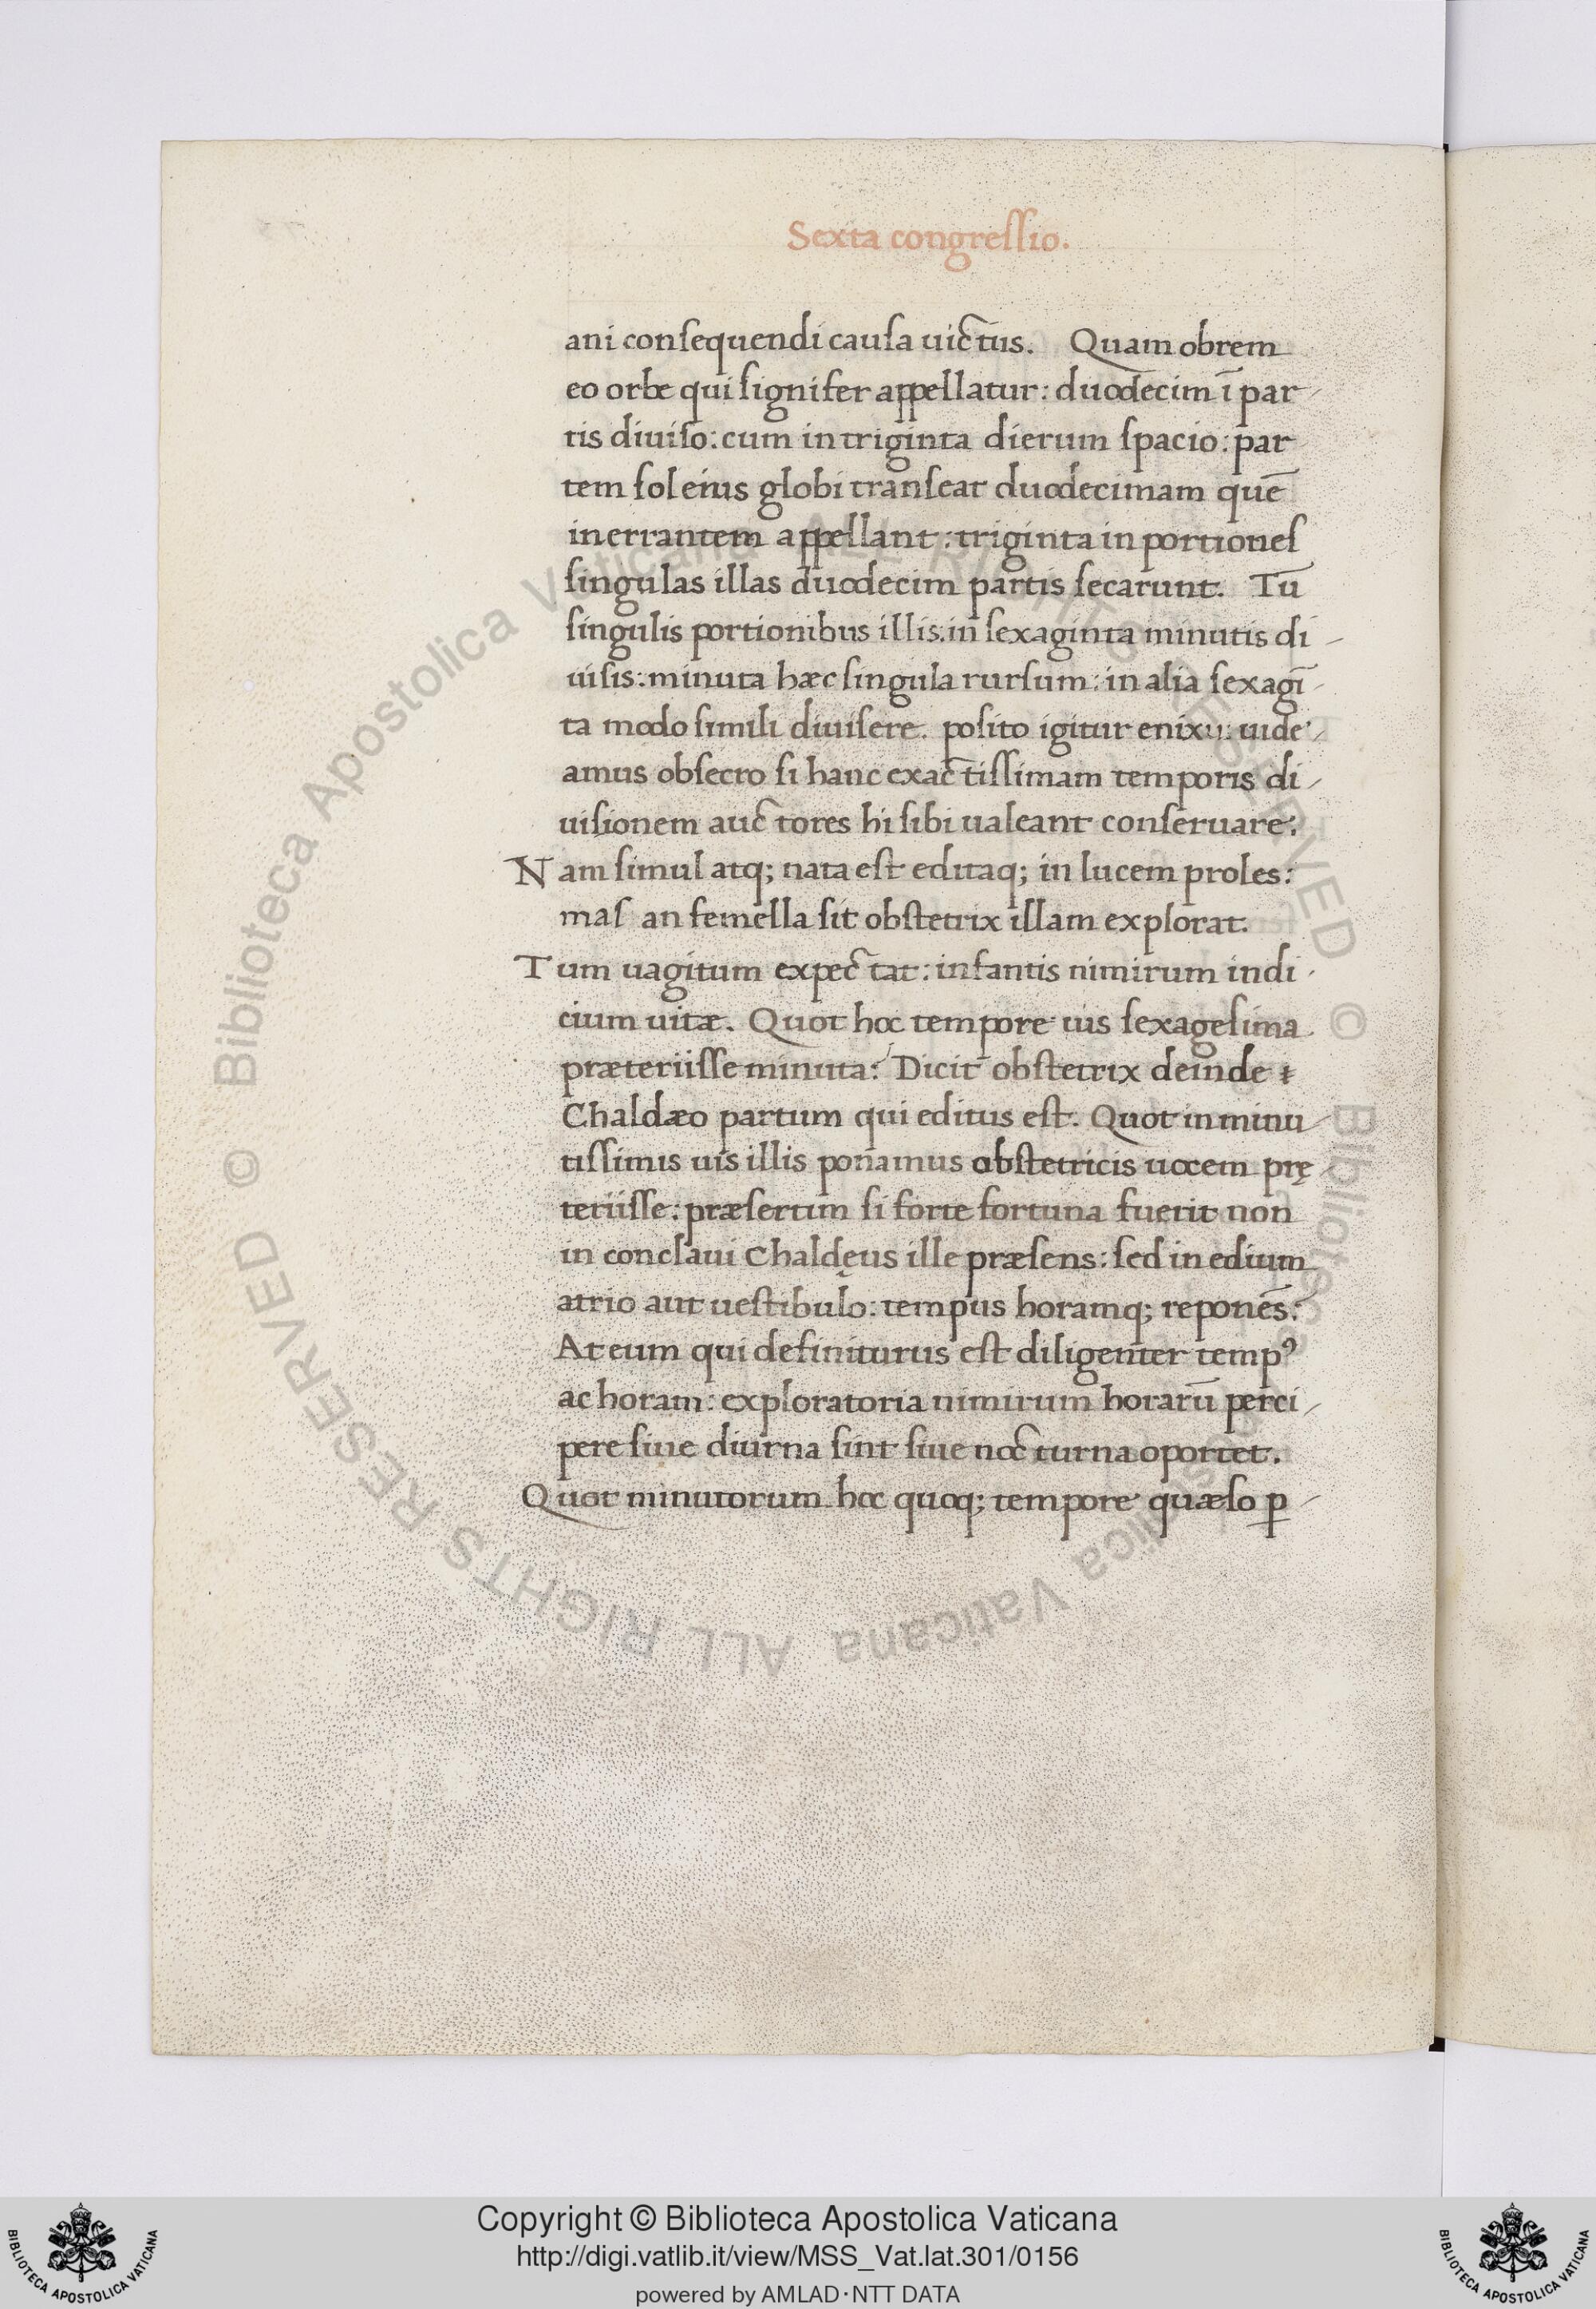 Sexta congreſſio.
ani conſequendi cauſa uictus. Quam obrem
eo orbe qui ſignifer appellatur: duodecim ī par
tis diuiſo: cum in triginta dierum ſpacio: par
tem ſol eius globi tranſeat duodecimam quē
inerrantem appellant: triginta in portioneſ
ſingulas illas duodecim partis ſecarunt. Tū
ſingulis portionibus illis: in ſexaginta minutis di
uiſis: minuta hæc ſingula rurſum: in alia ſexagī
ta modo ſimili diuiſere. poſito igitur enixu: uide
amus obſecro ſi hanc exactiſſimam temporis di
uiſionem auctores hi ſibi ualeant conſeruare:
Nam ſimul atq; nata eſt editaq; in lucem proles:
maſ an femella ſit obſtetrix illam explorat.
Tum uagitum expectat: infantis nimirum indi
cium uitæ. Quot hoc tempore uis ſexageſima
præteriiſſe minuta: Dicit obſtetrix deinde
Chaldæo partum qui editus eſt. Quot in minu
tiſſimis uis illis ponamus obſtetricis uocem prę
teriiſſe: præſertim ſi forte fortuna fuerit non
in conclaui Chaldęus ille præſens: ſed in edium
atrio aut ueſtibulo: tempus horamq; reponēs:
At eum qui definiturus eſt diligenter tempꝰ
ac horam: exploratoria nimirum horarū perci
pere ſiue diurna ſint ſiue nocturna oportet.
Quot minutorum hoc quoq; tempore quæſo ꝑ
© Biblioteca Apostolica Vaticana ALL RIGHTS RESERVED © Biblioteca Apostolica Vaticana ALL RIGHTS RESERVED
Copyright © Biblioteca Apostolica Vaticana
http://digi.vatlib.it/view/MSS_Vat.lat.301/0156
powered by AMLAD·NTT DATA
BIBLIOTECA APOSTOLICA VATICANA
BIBLIOTECA APOSTOLICA VATICANA